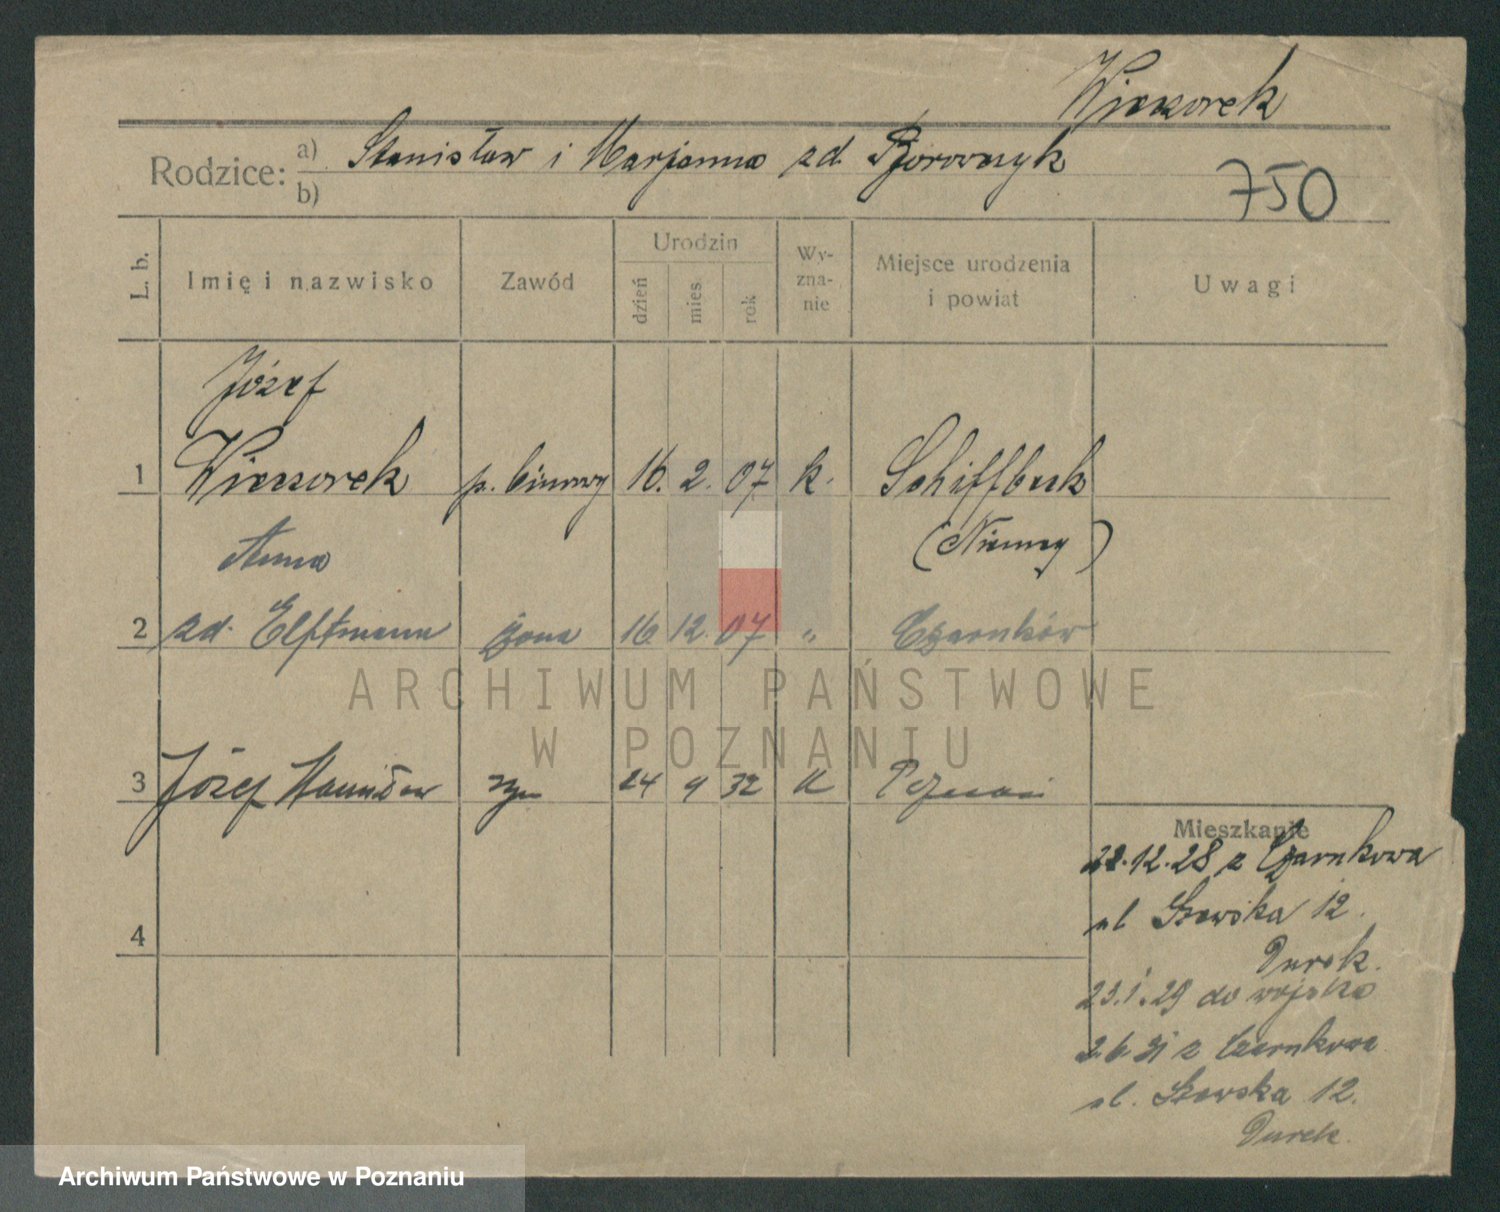 Wieczorek
Rodzice: a) Stanisław i Marjanna zd. Borowczyk
b)
750
L. b. Imię i nazwisko Zawód Urodzin dzień mies. rok Wy-zna-nie Miejsce urodzenia i powiat Uwagi
Józef
1 Wieczorek p. biurowy 16. 2. 07 k. Schiffbeck
(Niemcy)
Anna
2 zd. Elftmann żona 16. 12. 07 " Czarnków
3 Józef Stanisław syn 24 9 32 k Poznań
4
Mieszkanie
22.12.28 z Czarnkowa
ul. Szewska 12.
Durek.
23.1.29 do wojska
2.6.31 z Czarnkowa
ul. Szewska 12.
Durek.
ARCHIWUM PAŃSTWOWE
W POZNANIU
Archiwum Państwowe w Poznaniu